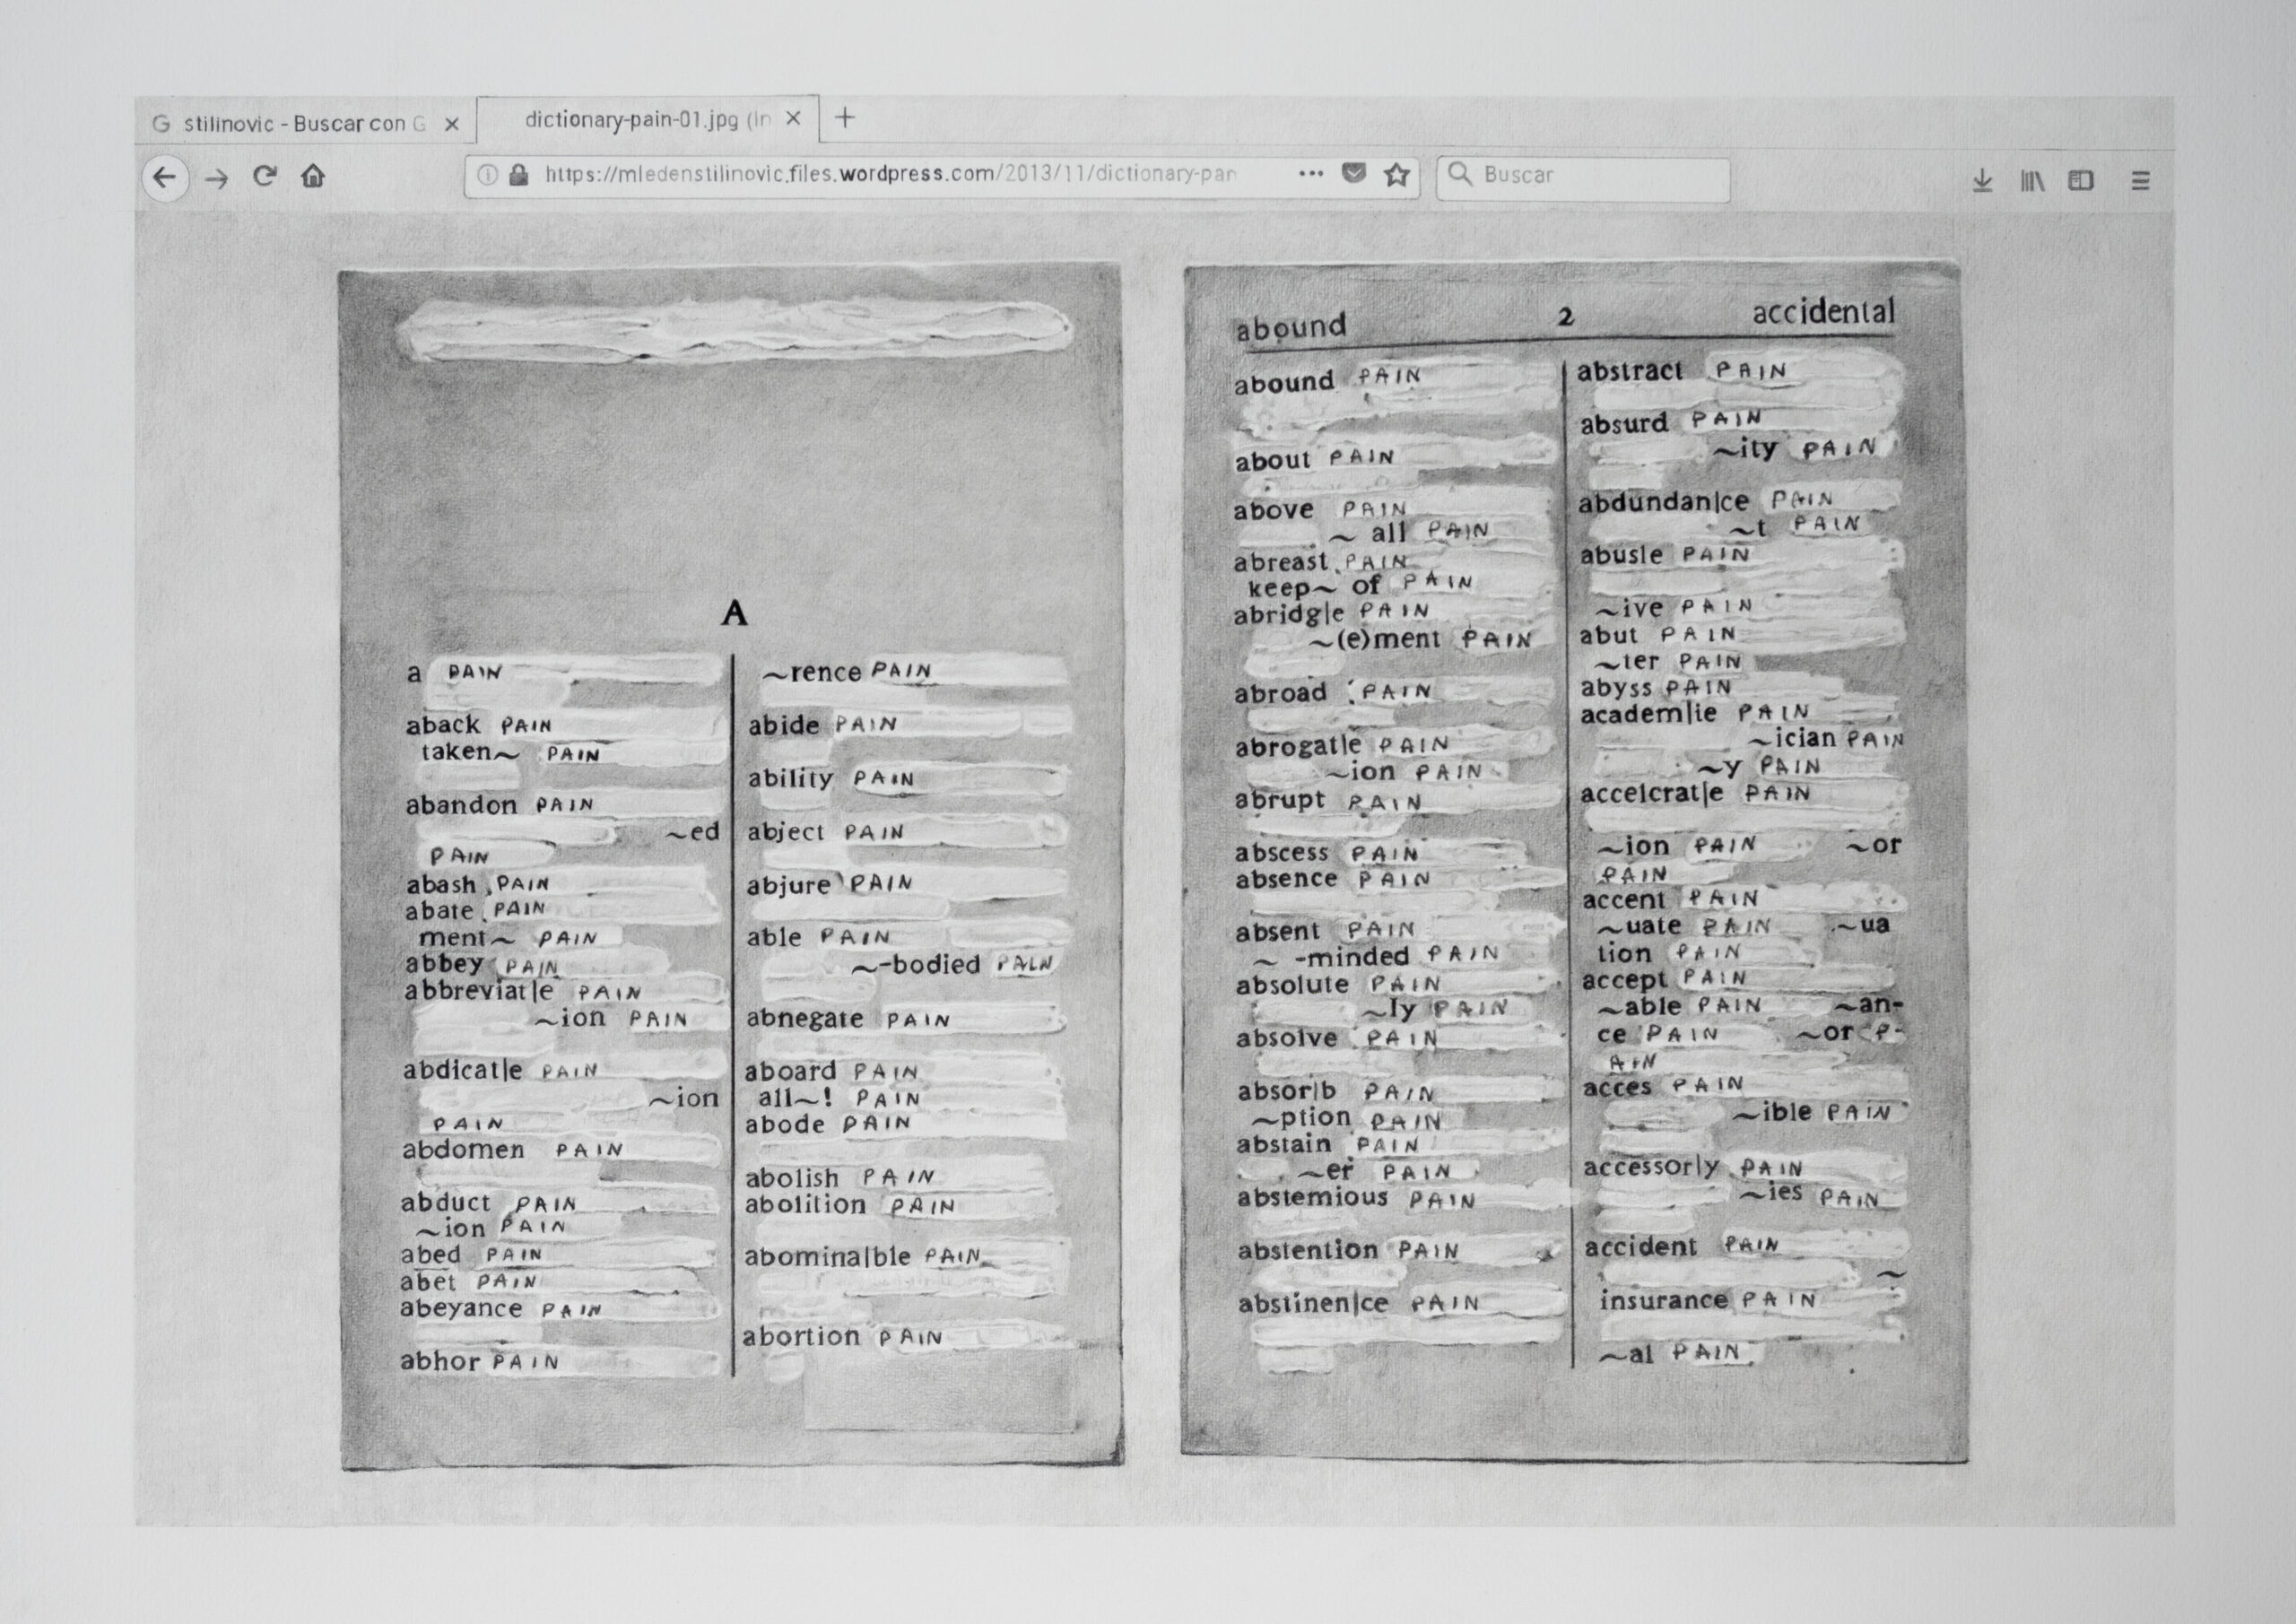 G stilinovic - Buscar con G
dictionary-pain-01.jpg (In
https://mledenstilinovic.files.wordpress.com/2013/11/dictionary-pan
Buscar
A
a PAIN
aback PAIN
taken~ PAIN
abandon PAIN
~ed
PAIN
abash PAIN
abate PAIN
ment~ PAIN
abbey PAIN
abbreviat|e PAIN
~ion PAIN
abdicat|e PAIN
~ion
PAIN
abdomen PAIN
abduct PAIN
~ion PAIN
abed PAIN
abet PAIN
abeyance PAIN
abhor PAIN
~rence PAIN
abide PAIN
ability PAIN
abject PAIN
abjure PAIN
able PAIN
~-bodied PAIN
abnegate PAIN
aboard PAIN
all~! PAIN
abode PAIN
abolish PAIN
abolition PAIN
abomina|ble PAIN
abortion PAIN
abound 2 accidental
abound PAIN
about PAIN
above PAIN
~ all PAIN
abreast PAIN
keep~ of PAIN
abridg|e PAIN
~(e)ment PAIN
abroad PAIN
abrogat|e PAIN
~ion PAIN
abrupt PAIN
abscess PAIN
absence PAIN
absent PAIN
~ -minded PAIN
absolute PAIN
~ly PAIN
absolve PAIN
absor|b PAIN
~ption PAIN
abstain PAIN
~er PAIN
abstemious PAIN
abstention PAIN
abstinen|ce PAIN
abstract PAIN
absurd PAIN
~ity PAIN
abdundan|ce PAIN
~t PAIN
abus|e PAIN
~ive PAIN
abut PAIN
~ter PAIN
abyss PAIN
academ|ie PAIN
~ician PAIN
~y PAIN
accelcrat|e PAIN
~ion PAIN ~or
PAIN
accent PAIN
~uate PAIN ~ua
tion PAIN
accept PAIN
~able PAIN ~an-
ce PAIN ~or P-
AIN
acces PAIN
~ible PAIN
accessor|y PAIN
~ies PAIN
accident PAIN
~
insurance PAIN
~al PAIN